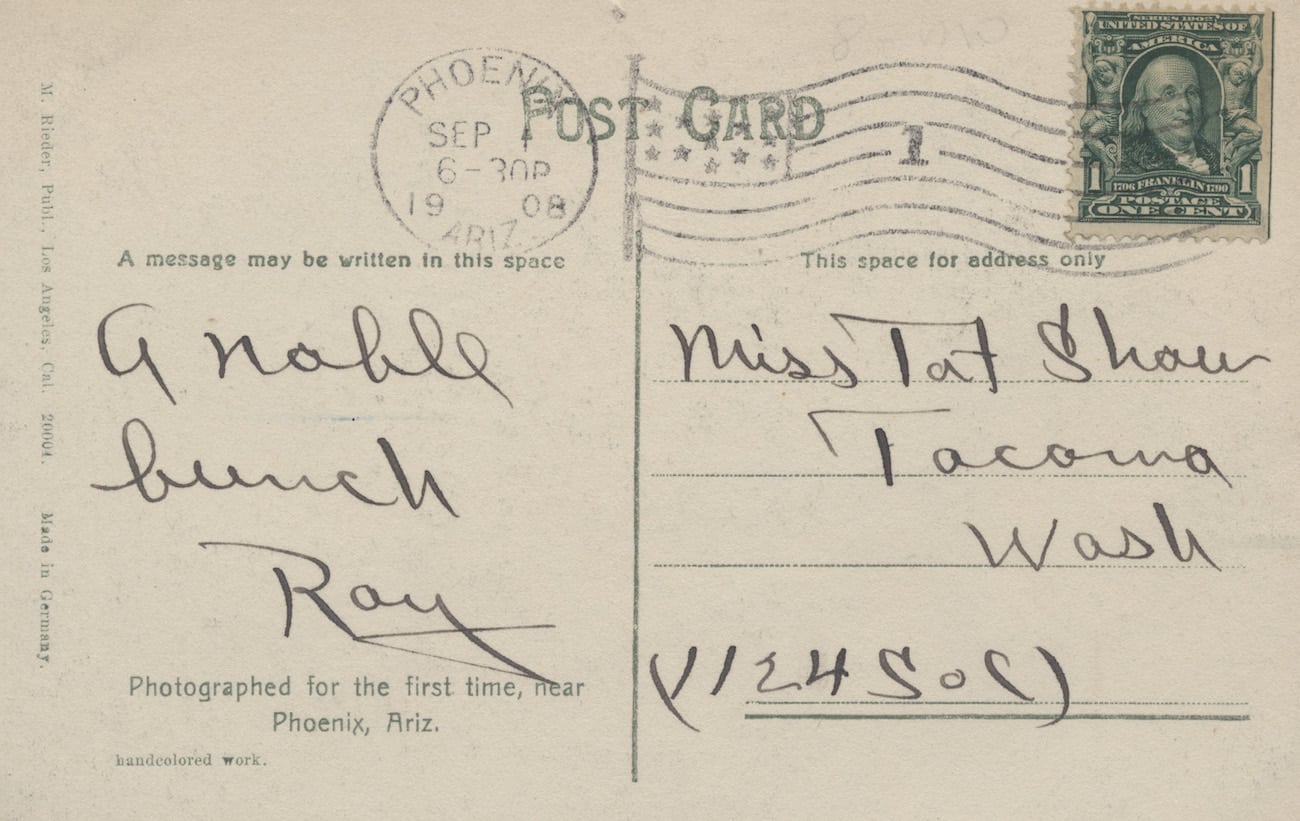 POST CARD
PHOENIX
SEP 1
6-30P
19 08
ARIZ.
1
SERIES 1902
UNITED STATES OF
AMERICA
1706 FRANKLIN 1790
1 1
POSTAGE
ONE CENT
M. Rieder, Publ., Los Angeles, Cal. 20004. Made in Germany.
A message may be written in this space
A noble
bunch
Ray
Photographed for the first time, near
Phoenix, Ariz.
handcolored work.
This space for address only
Miss Tat Shaw
Tacoma
Wash
(1124 So C)